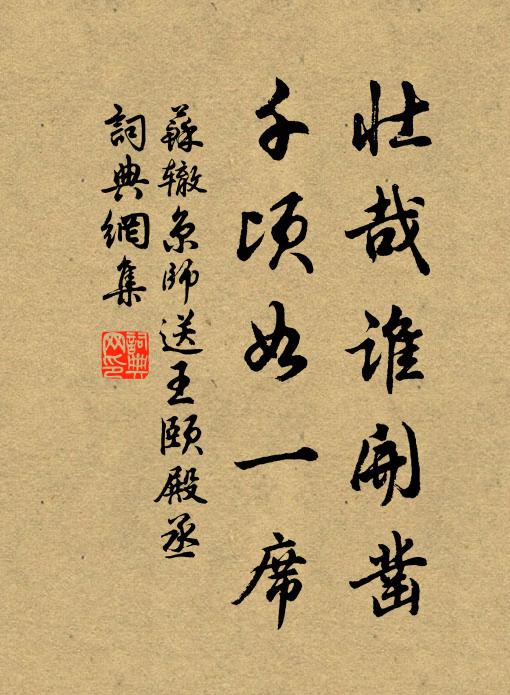 壮哉谁開凿
千顷如一席
蘇辙京師送王颐殿丞
詞典網集
詞典网印